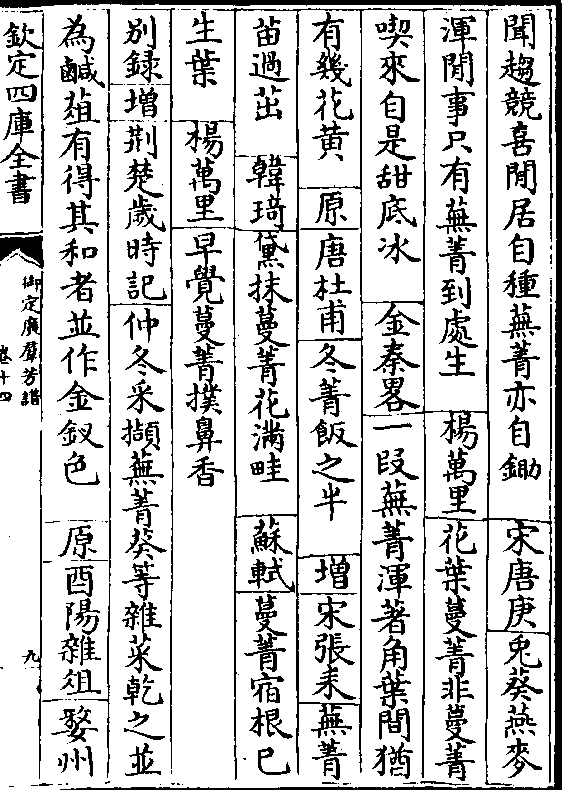 聞趨競喜閒居自種蕪菁亦自鋤　宋唐庚兎葵燕麥
渾閒事只有蕪菁到處生　楊萬里花葉蔓菁非蔓菁
喫來自是甜底冰　金秦畧一段蕪菁渾著角葉間猶
有幾花黄　原唐杜甫冬菁飯之半　增宋張耒蕪菁
苗過茁　韓琦黛抹蔓菁花滿畦　蘇軾蔓菁宿根已
生葉　楊萬里早覺蔓菁撲鼻香
别録增荆楚歲時記仲冬采擷蕪菁葵等雜菜乾之並
為鹹葅有得其和者並作金釵色　原酉陽雜俎婺州
欽定四庫全書
御定廣羣芳譜
卷十四
九